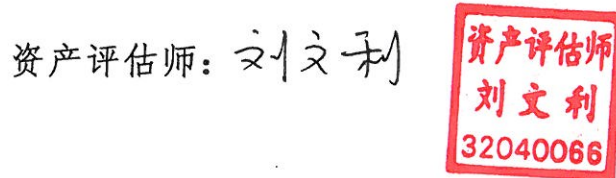 资产评估师：刘文利
资产评估师
刘文利
32040066